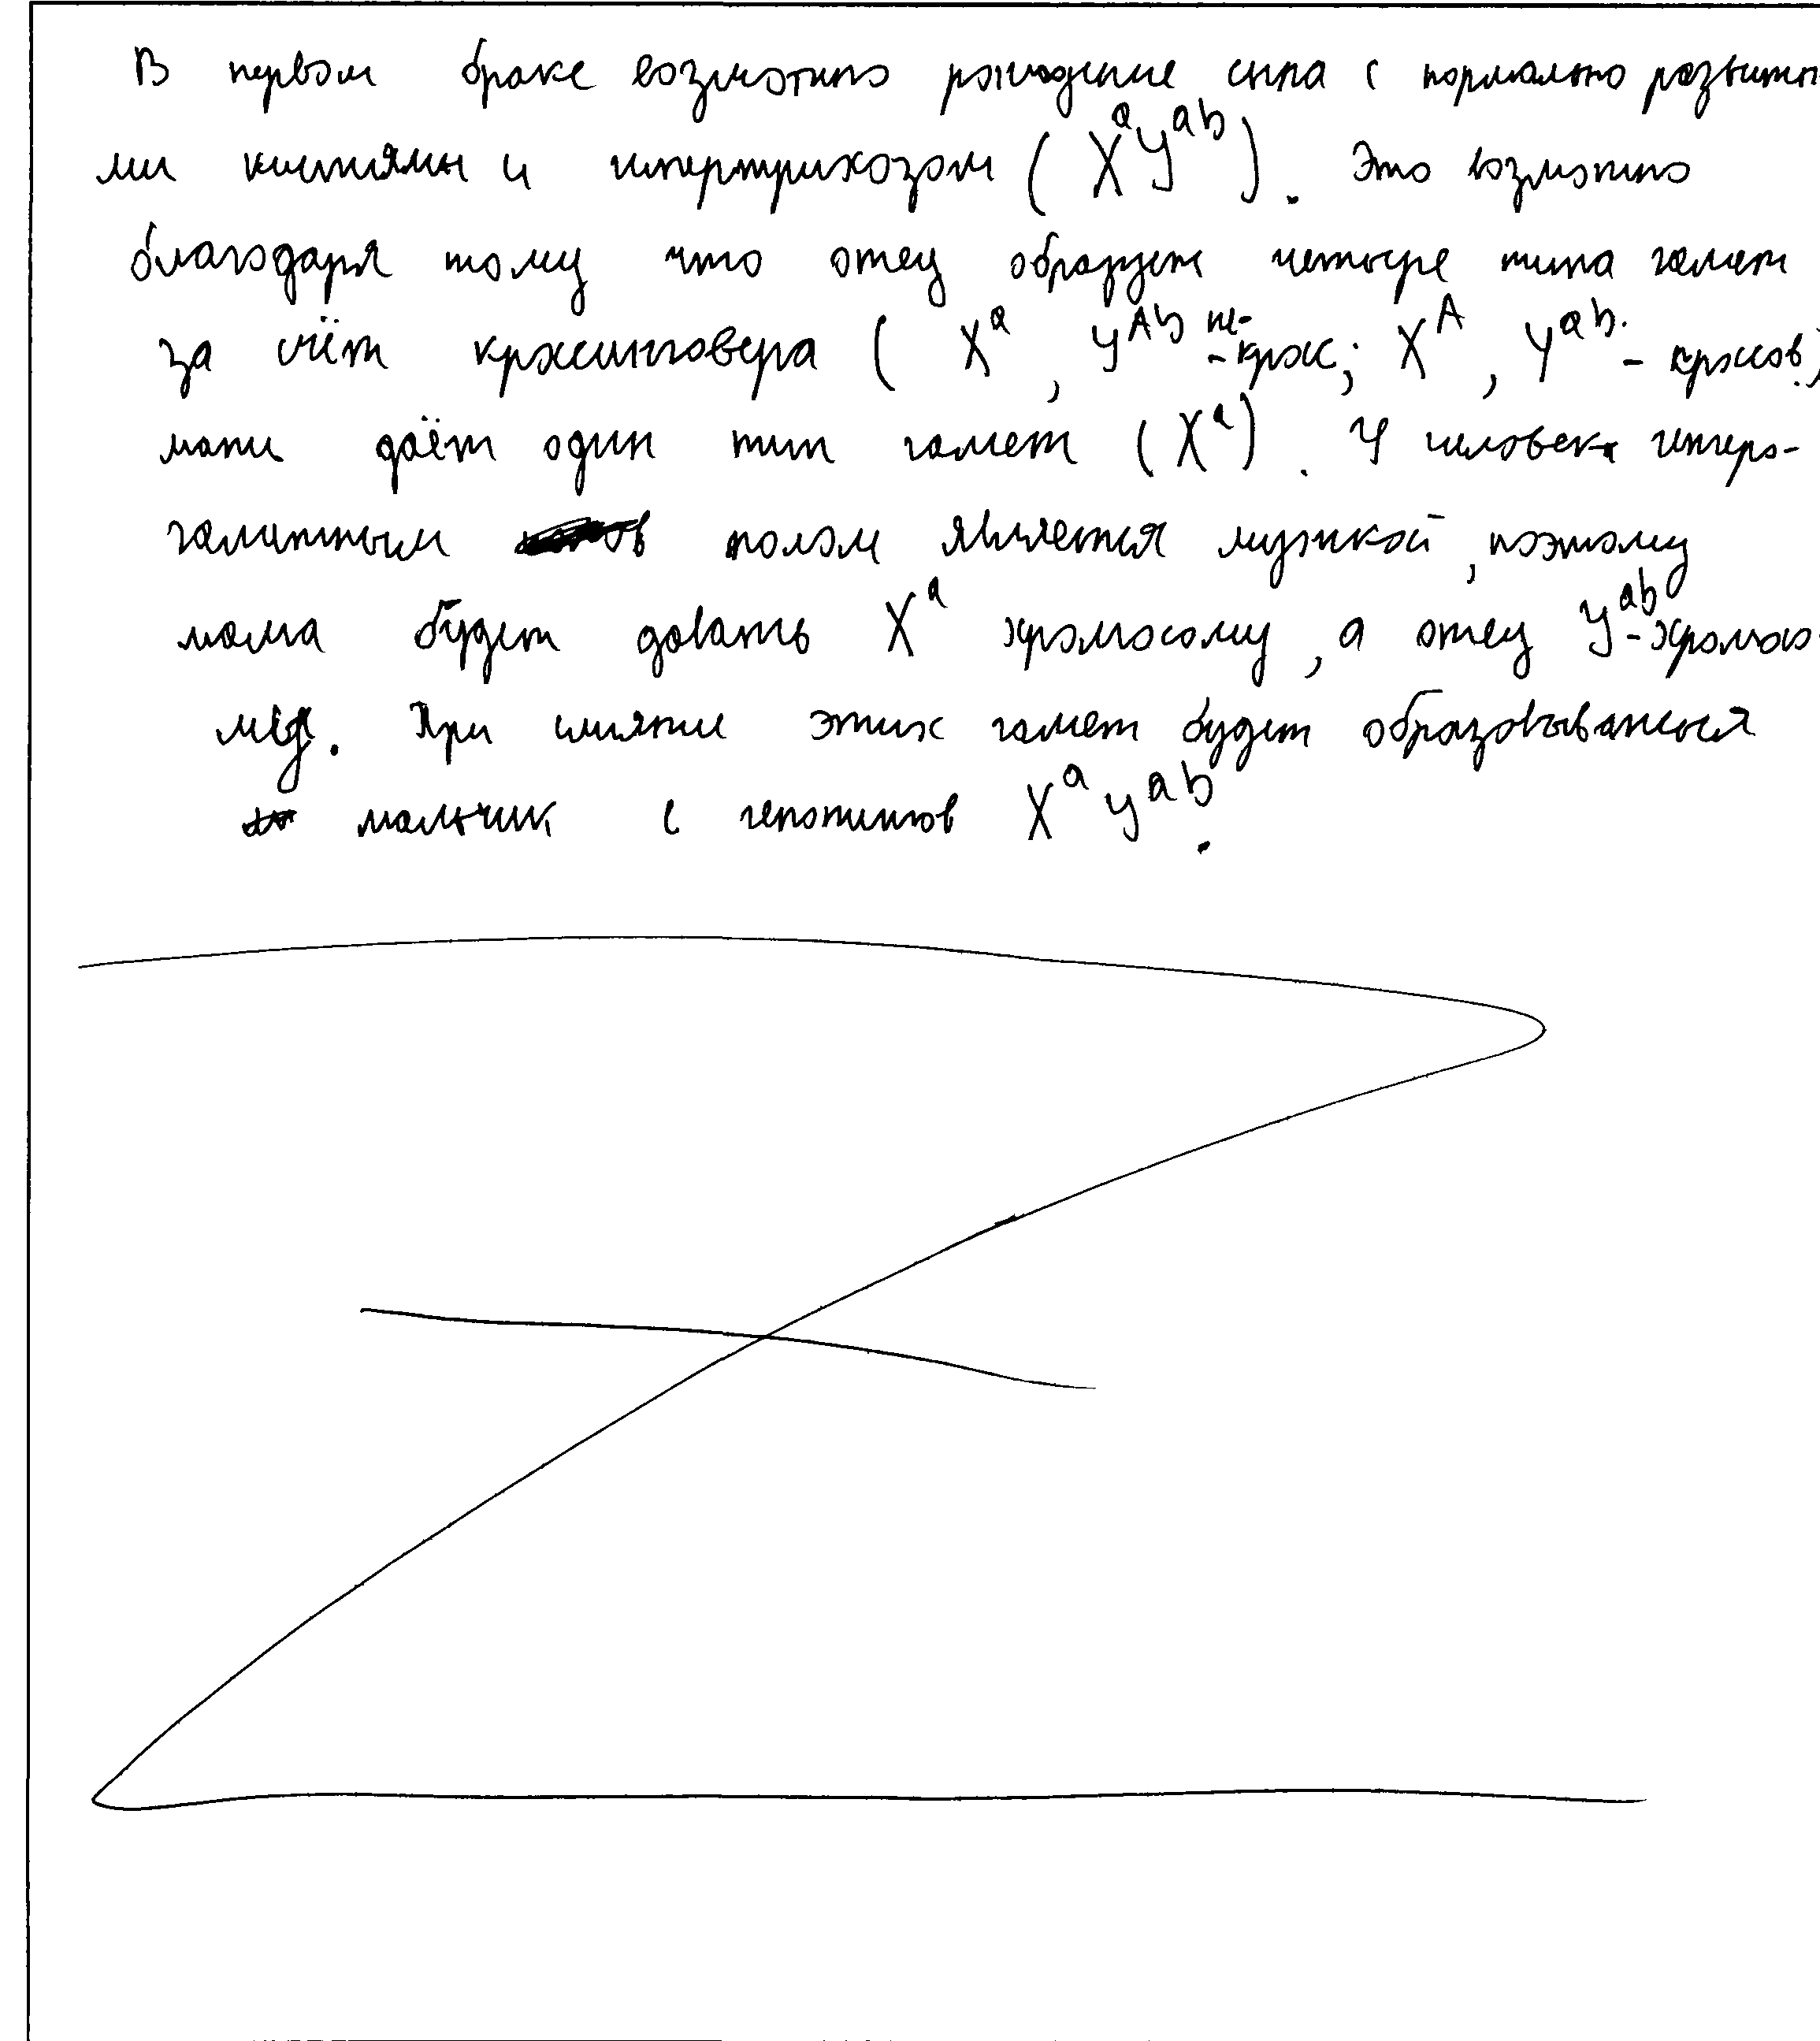 В первом браке возможно рождение сына с нормально развиты
ми кистями и гипертрихозом (XᵃYᵃᵇ). Это возможно
благодаря тому что отец образует четыре типа гамет
за счёт кроссинговера (Xᵃ, Yᴬᵇ не-
-кросс; Xᴬ, Yᵃᵇ. - кроссов.)
мать даёт один тип гамет (Xᵃ). У человека гетеро-
гаметным полом является мужской, поэтому
мама будет давать Xᵃ хромосому, а отец Yᵃᵇ-хромосо-
му. При слиянии этих гамет будет образовываться
мальчик с генотипов XᵃYᵃᵇ.